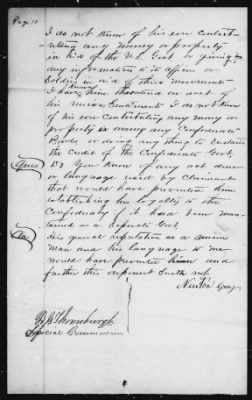 Page 10
I do not know of his ever contributing any money or property
in aid of the U.S. Govt or giving
any information to its officers or
Soldiers in aid of their movements
I have him threatened on acct of
his Union Sentiments I do not know
of his ever contributing any money or
property in money any Confederate
Bonds or doing any thing to sustain
the Credit of the Confederate Govt.
Ques Do You Know of any act done
or language used by Claimant
that would have prevented him
establishing his loyalty to the
Confederacy if it had been maintained as a Seperate Govt.
Ans
His general reputation as a union
Man and his language to me
would have prevented him and
further this deponent saith not
Newton
Special Commissioner